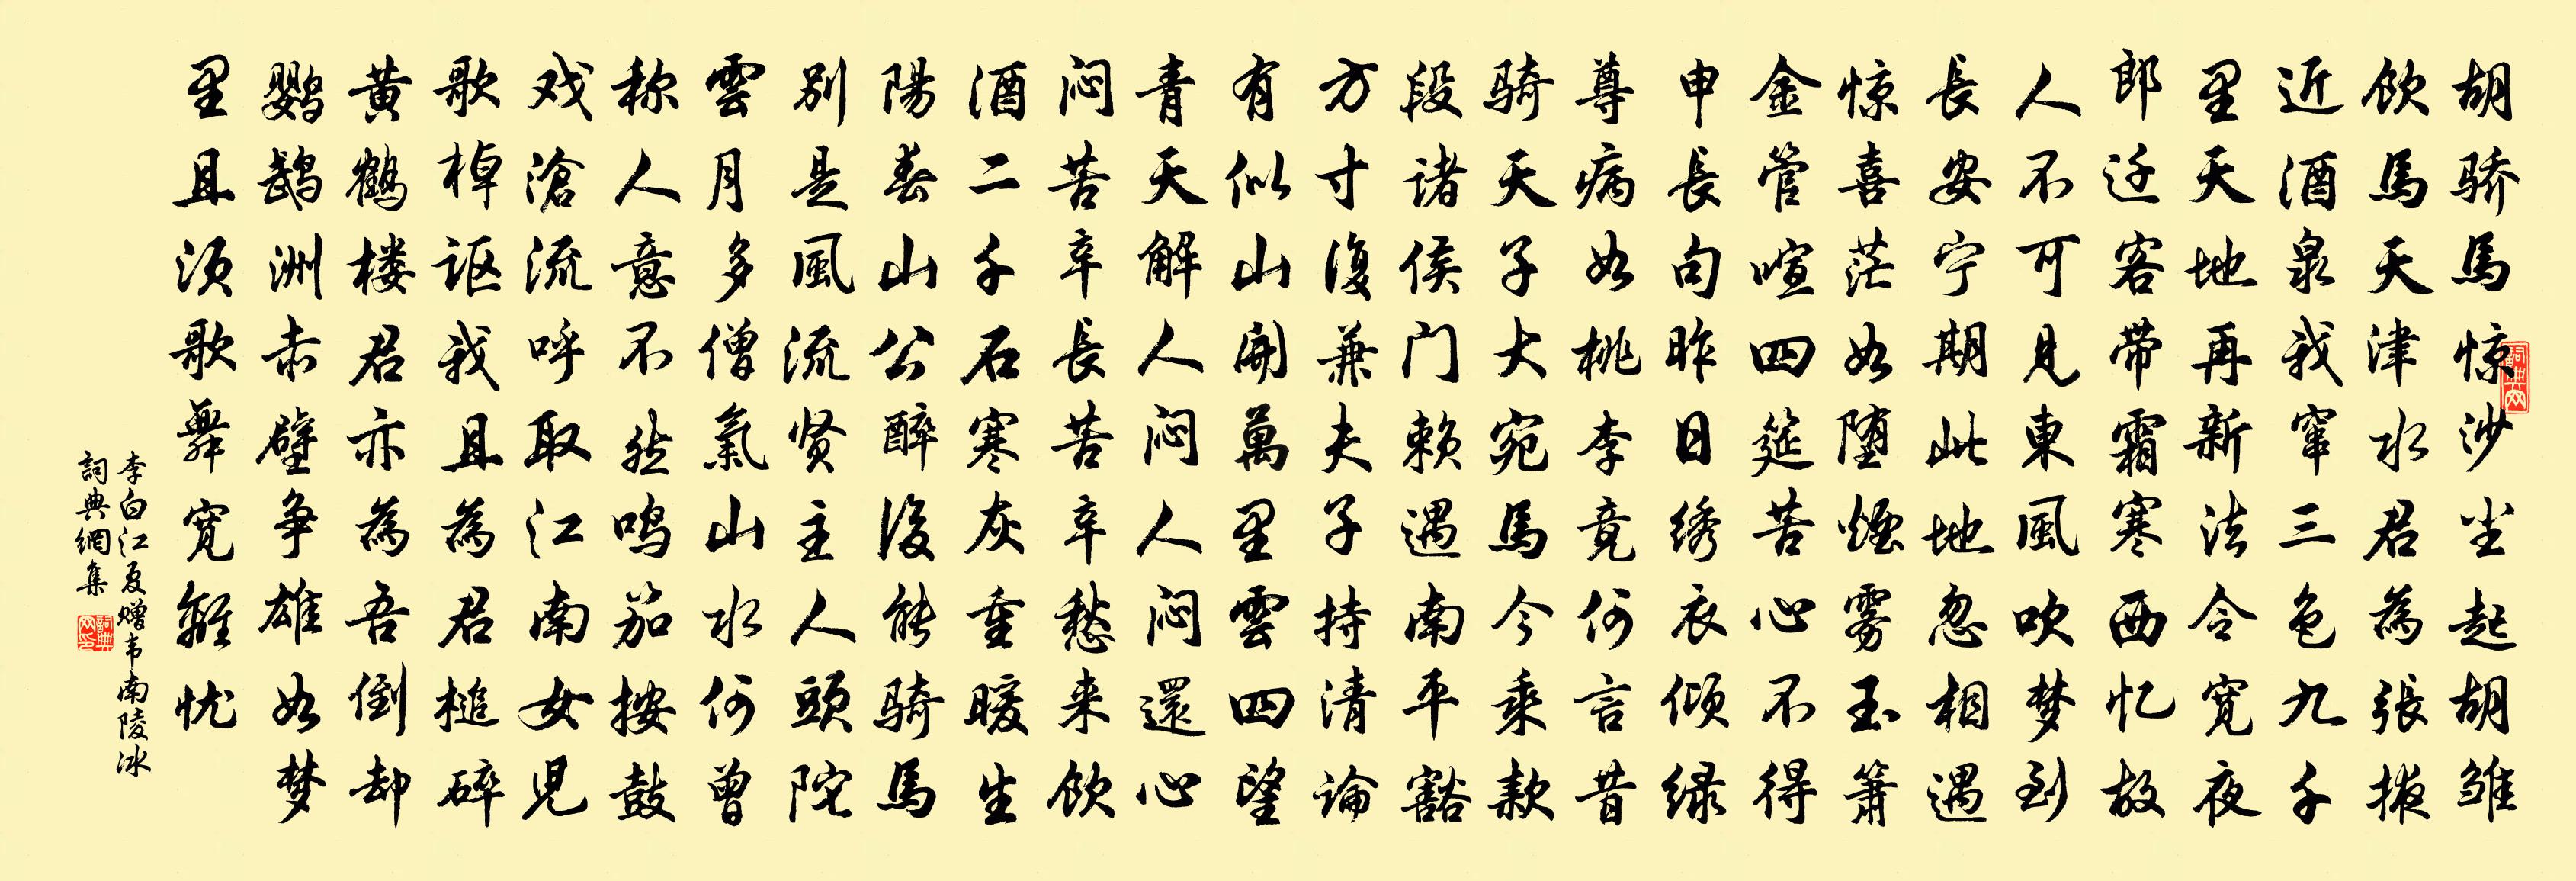 胡骄馬惊沙尘起胡雏
飲馬天津水君為張掖
近酒泉我窜三色九千
里天地再新法令宽夜
郎迁客带霜寒西忆故
人不可见東風吹梦到
長安宁期此地忽相遇
惊喜茫如堕煙雾玉箫
金管喧四筵苦心不得
申長句昨日绣衣倾绿
尊病如桃李竟何言昔
骑天子大宛馬今乘款
段诸侯门赖遇南平豁
方寸復兼夫子持清論
有似山開萬里雲四望
青天解人闷人闷還心
闷苦辛長苦辛愁来飲
酒二千石寒灰重暖生
陽春山公醉後能骑馬
别是風流贤主人頭陀
雲月多僧氣山水何曾
称人意不然鸣笳按鼓
戏滄流呼取江南女児
歌棹讴我且為君槌碎
黄鹤楼君亦為吾倒却
鹦鹉洲赤壁争雄如梦
里且须歌舞宽離忧
李白江夏赠韦南陵冰
詞典網集